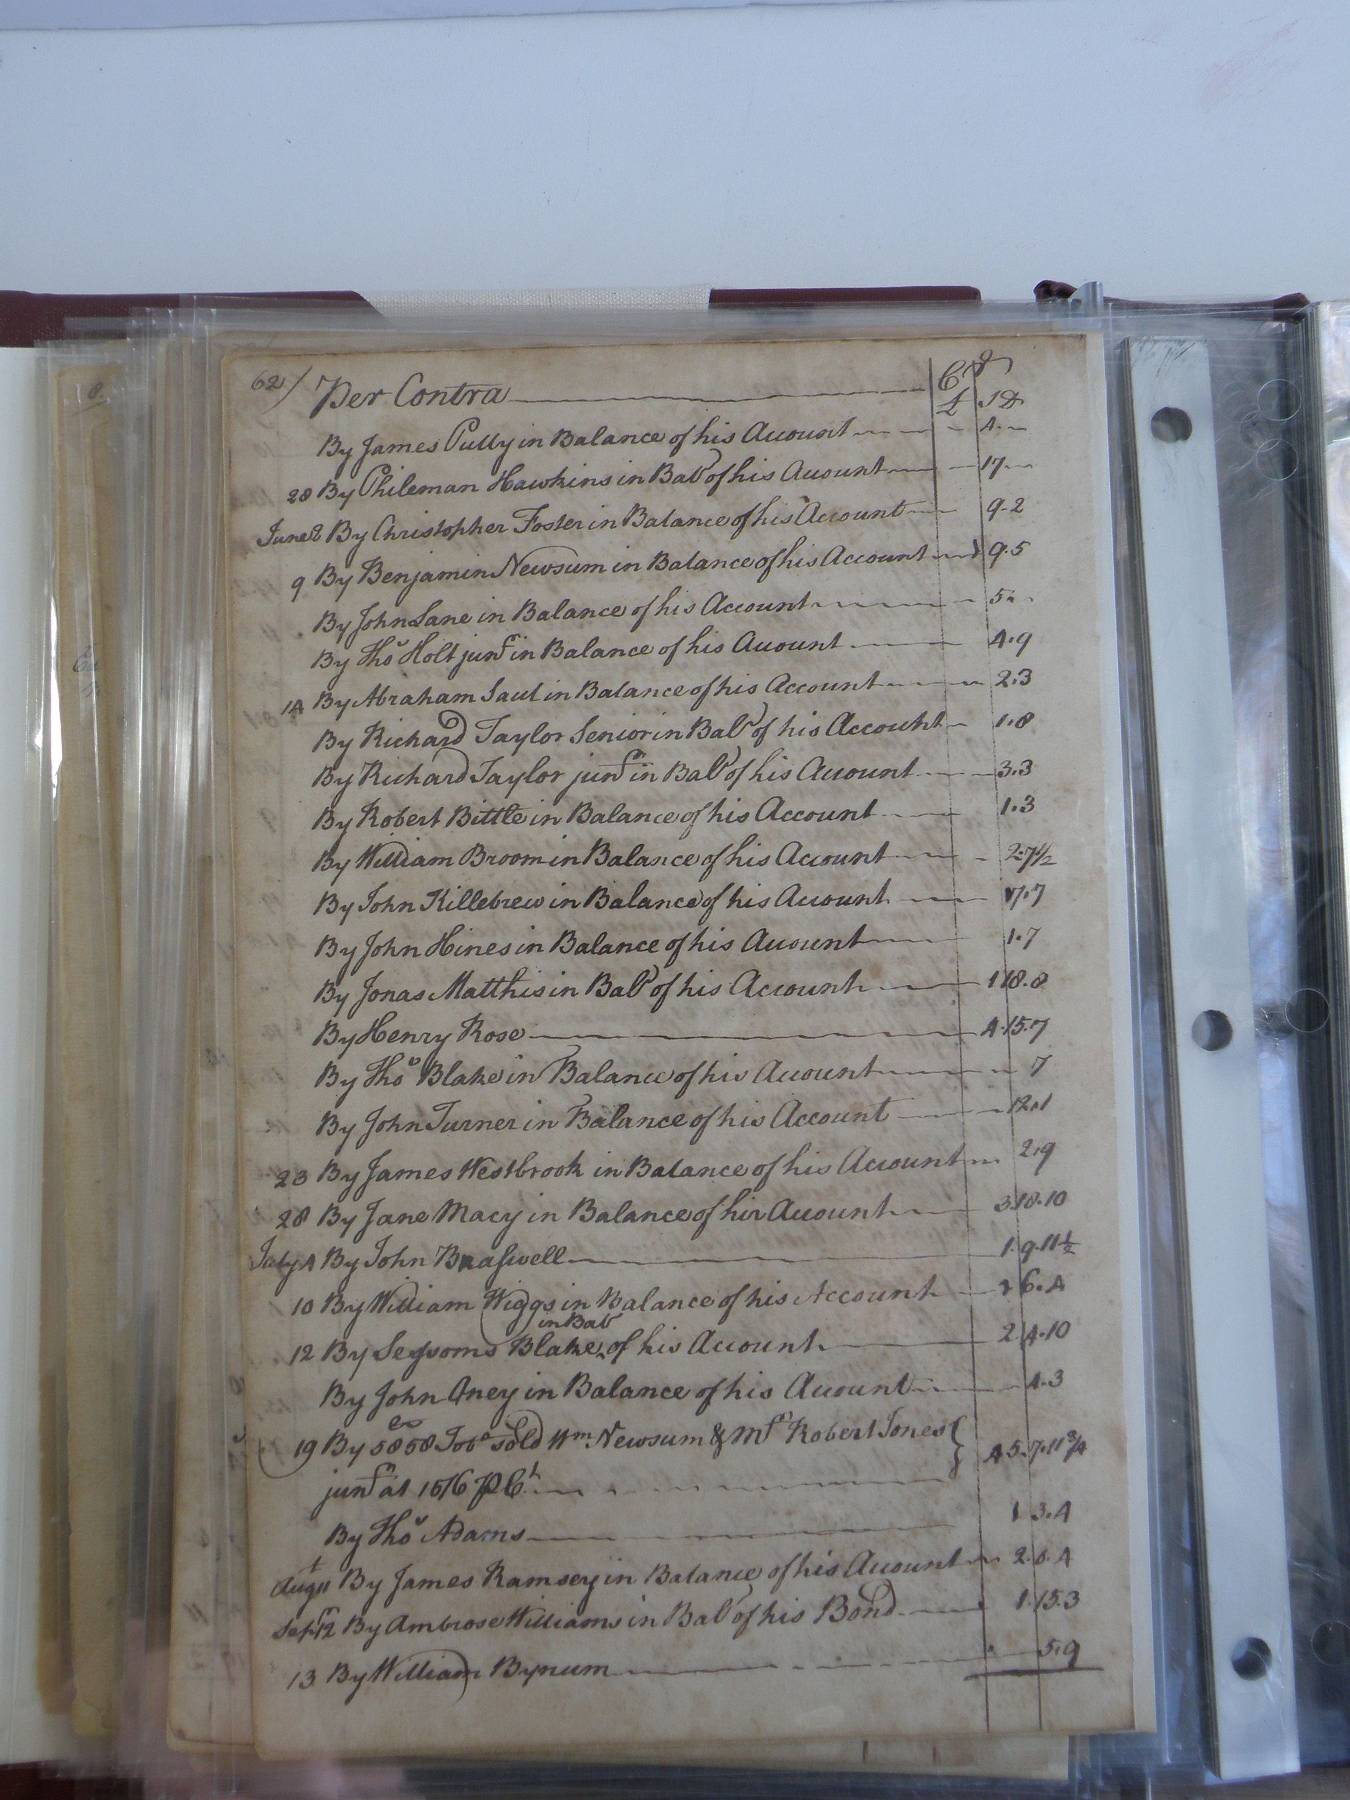 62) Per Contra Cr
£ S D
By James Pully in Balance of his Account 4
28 By Phileman Hawkins in Bale of his Account 17
June 8 By Christopher Foster in Balance of his Account 9.2
9 By Benjamin Newsum in Balance of his Account 9.5
By John Lane in Balance of his Account 5
By Thos Holt junr in Balance of his Account 4.9
14 By Abraham Saul in Balance of his Account 2.3
By Richard Taylor Senior in Bale of his Account 1.8
By Richard Taylor junr in Bale of his Account 3.3
By Robert Bittle in Balance of his Account 1.3
By William Broom in Balance of his Account 2.7½
By John Killebrew in Balance of his Account 7.7
By John Hines in Balance of his Account 1.7
By Jonas Matthis in Bale of his Account 1 18.8
By Henry Rose 4.15.7
By Thos Blake in Balance of his Account 7
By John Turner in Balance of his Account 12.1
23 By James Westbrook in Balance of his Account 2.9
28 By Jane Macy in Balance of hir Account 3.18.10
July 4 By John Braswell 1.9.11½
10 By William Wiggs in Balance of his Account 6.4
in Bale
12 By Seysoms Blake of his Account 2.4.10
By John Aney in Balance of his Account 4.3
19 By 5858 Tobo sold Wm Newsum & Mr Robert Jones
junr at 15/6 P Ct 45.7.11¾
By Thos Adams 1 3.4
Augt 11 By James Ramsey in Balance of his Account 2.8.4
Sepr 12 By Ambrose Williams in Bale of his Bond 1.15.3
13 By William Bynum 5.9